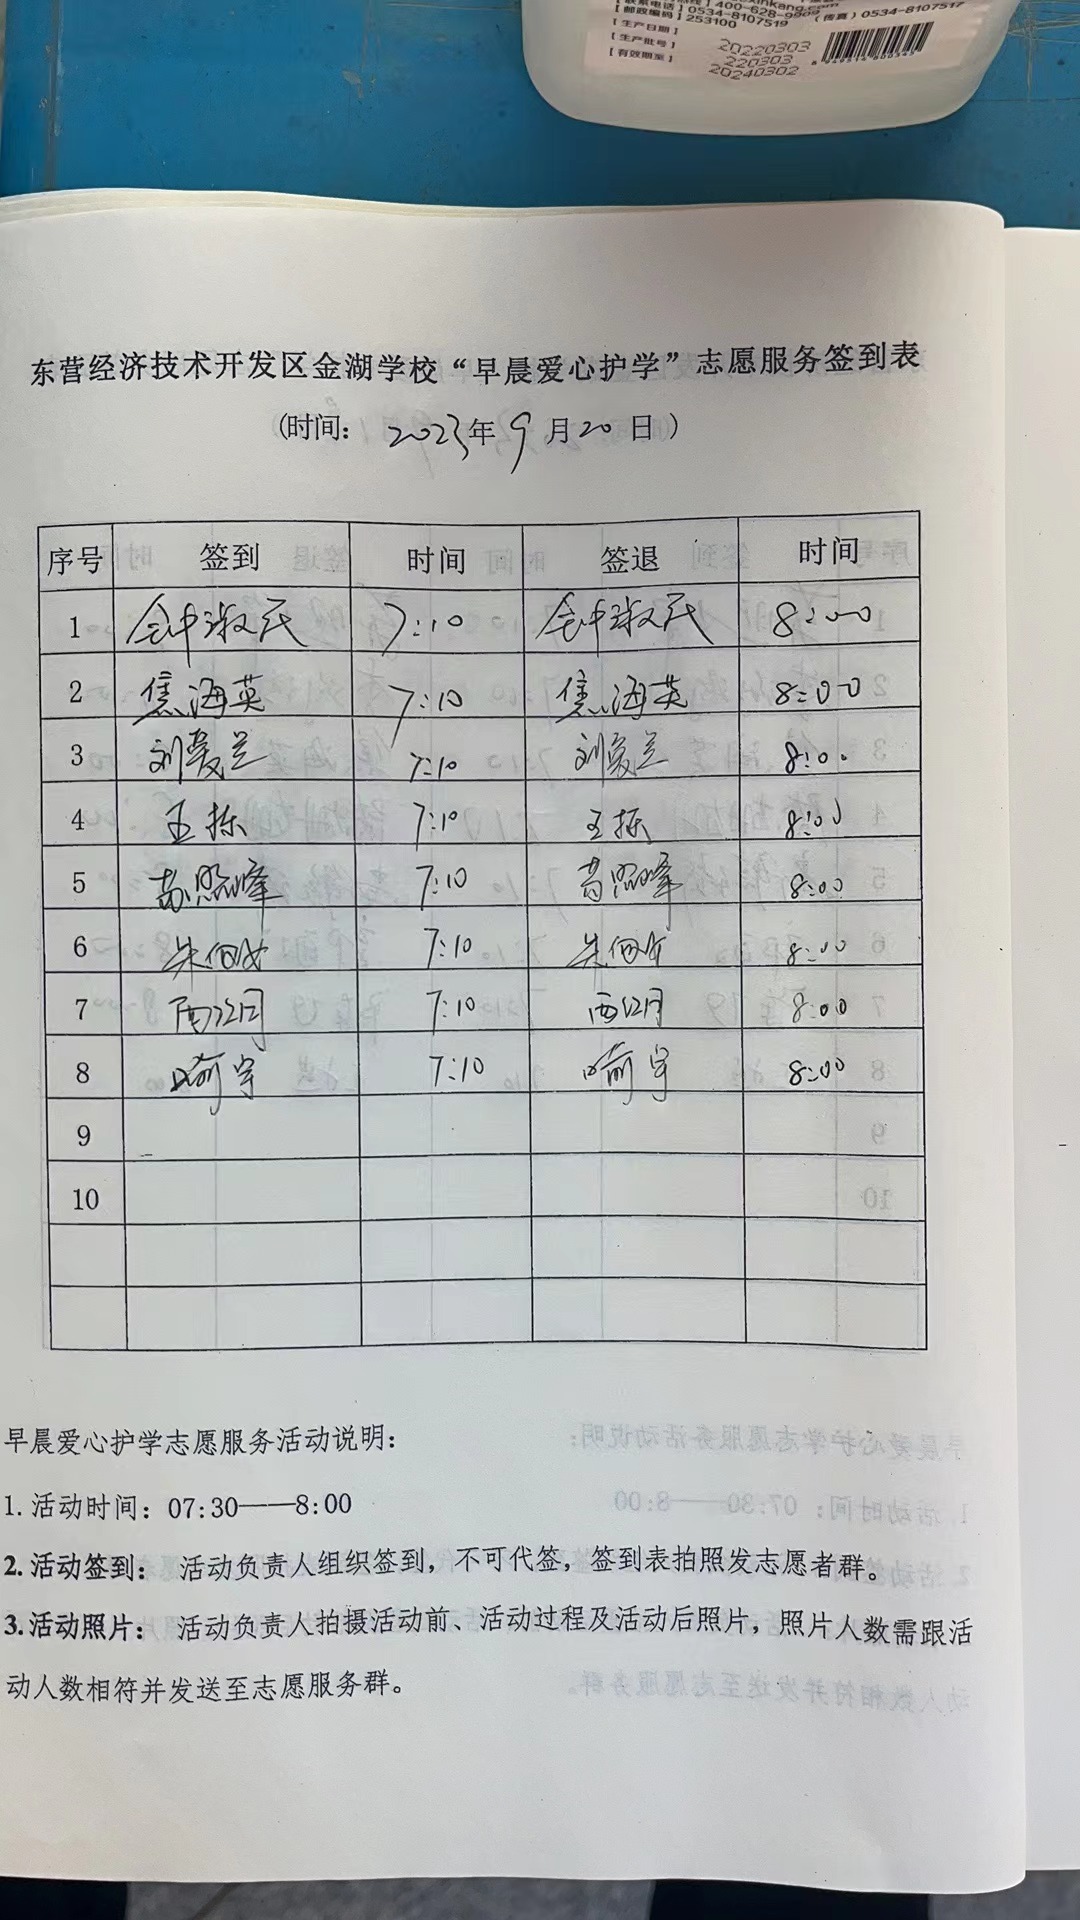 【联系电话】0534-8107519 (传真) 0534-8107517
【邮政编码】253100
【生产日期】 20220303
【生产批号】 220303
【有效期至】 20240302
东营经济技术开发区金湖学校“早晨爱心护学”志愿服务签到表
(时间: 2023年9月20日)
序号 签到 时间 签退 时间
1 7:10 8:00
2 焦海英 7:10 焦海英 8:00
3 刘爱兰 7:10 刘爱兰 8:00
4 王栋 7:10 王栋 8:00
5 苏照峰 7:10 苏照峰 8:00
6 7:10 8:00
7 7:10 8:00
8 喻宇 7:10 喻宇 8:00
9
10
早晨爱心护学志愿服务活动说明:
1.活动时间: 07:30——8:00
2.活动签到: 活动负责人组织签到,不可代签,签到表拍照发志愿者群。
3.活动照片: 活动负责人拍摄活动前、活动过程及活动后照片,照片人数需跟活
动人数相符并发送至志愿服务群。